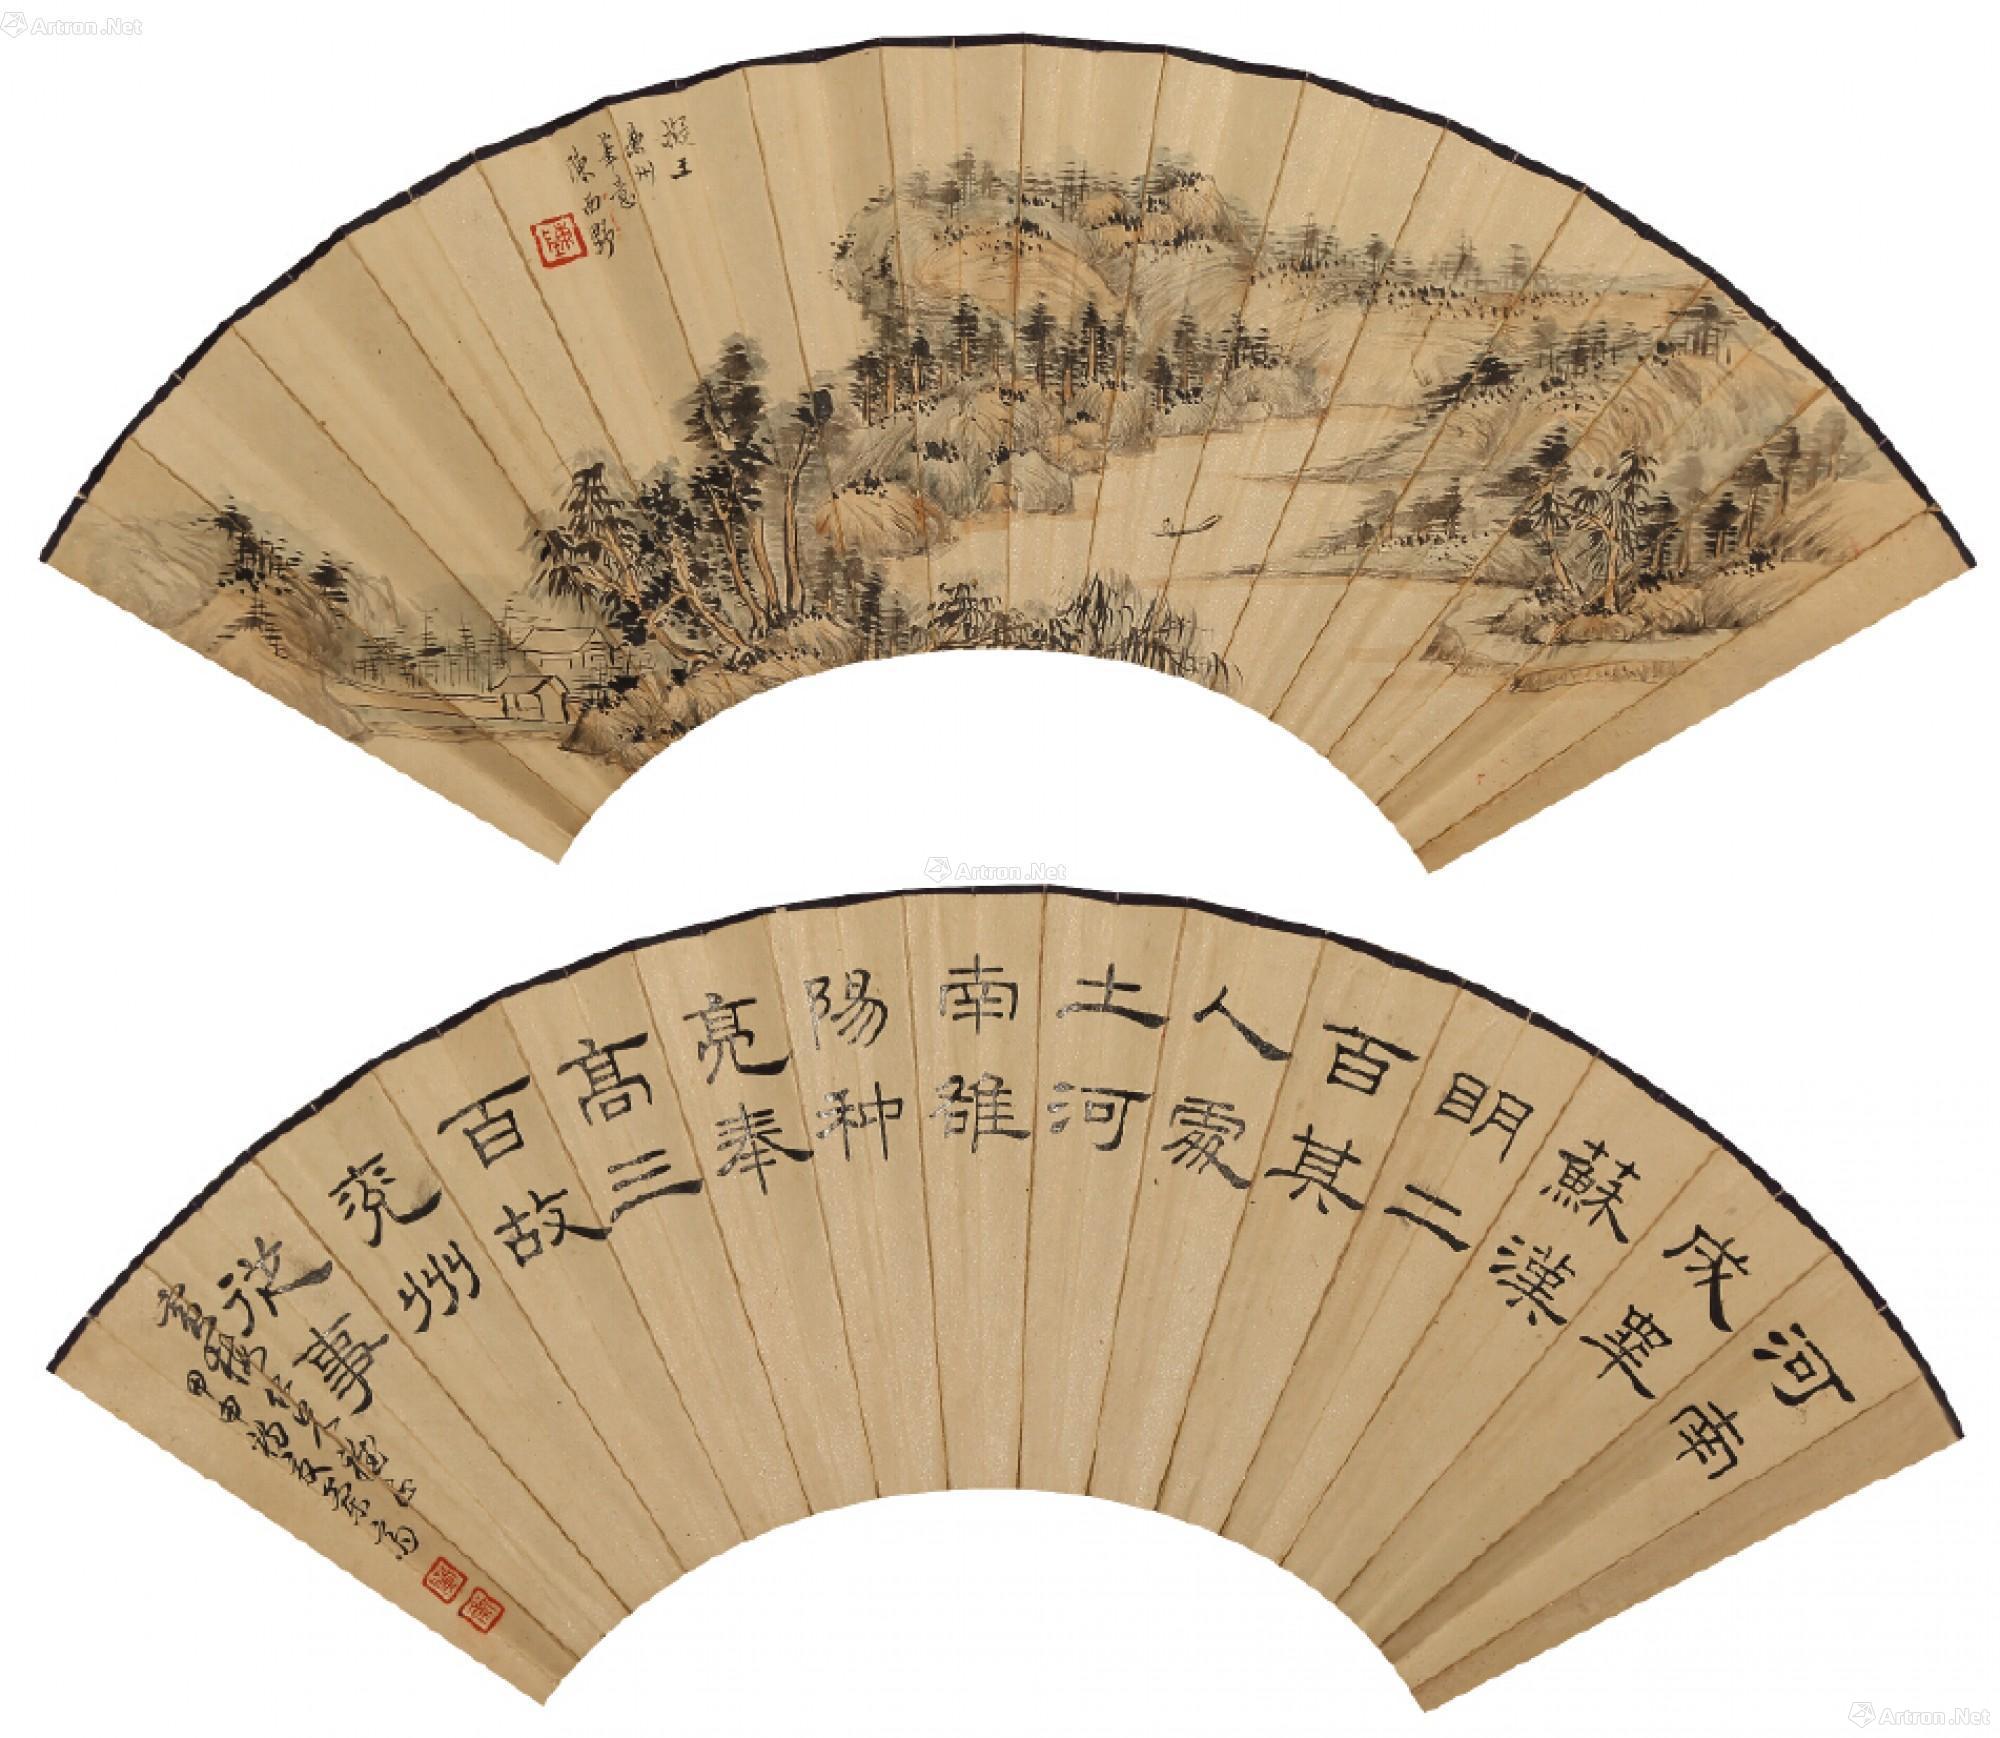 Artron.Net
擬王
筆意
陳西野
Artron.Net
河南
成睪
蘇漢
明二
百其
人處
土河
南雒
陽种
亮奉
高三
百故
兖州
從事
甲申
Artron.Net